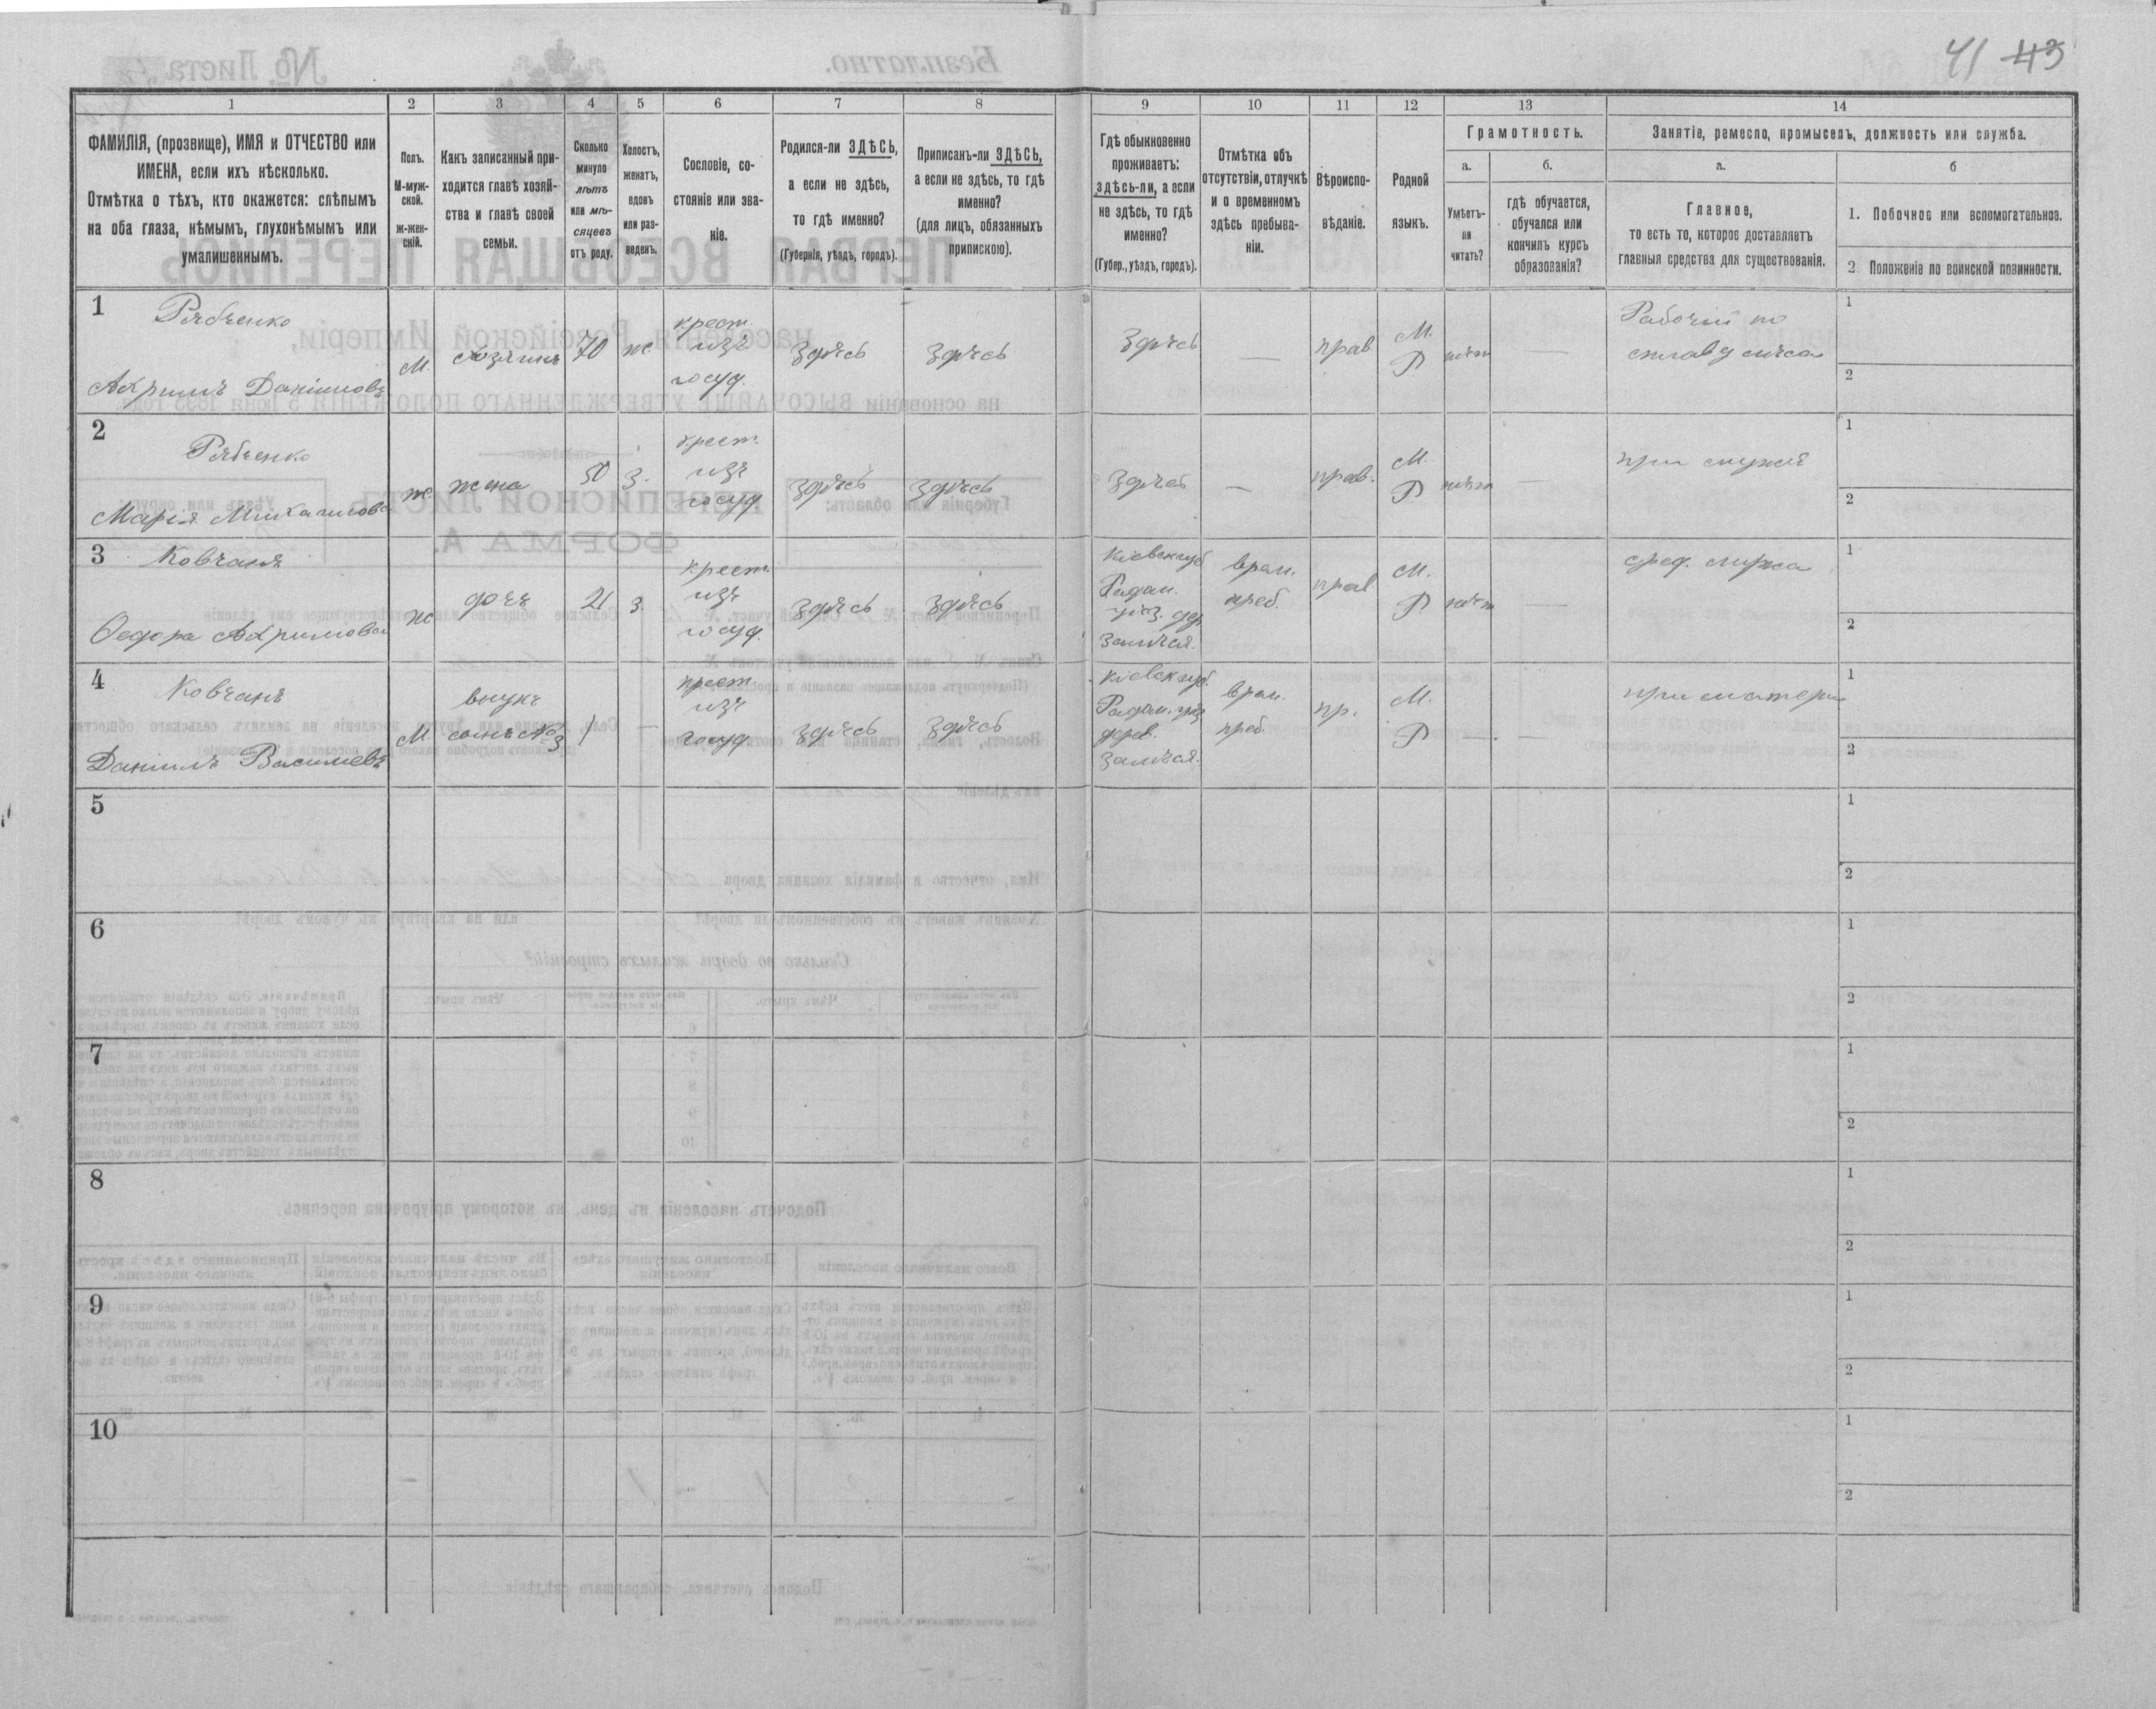 41 43
1 2 3 4 5 6 7 8 9 10 11 12 13 14
ФАМИЛІЯ, (прозвище), ИМЯ и ОТЧЕСТВО или
ИМЕНА, если ихъ нѣсколько.
Отмѣтка о тѣхъ, кто окажется: слѣпымъ
на оба глаза, нѣмымъ, глухонѣмымъ или
умалишеннымъ.
Полъ.
М-муж-
ской.
ж-жен-
скій.
Какъ записанный при-
ходится главѣ хозяй-
ства и главѣ своей
семьи.
Сколько
минуло
лѣтъ
или мѣ-
сяцевъ
отъ роду.
Холостъ,
женатъ,
вдовъ
или раз-
веденъ.
Сословіе, со-
стояніе или зва-
ніе.
Родился-ли ЗДѢСЬ,
а если не здѣсь,
то гдѣ именно?
(Губернія, уѣздъ, городъ).
Приписанъ-ли ЗДѢСЬ,
а если не здѣсь, то гдѣ
именно?
(для лицъ, обязанныхъ
припискою).
Гдѣ обыкновенно
проживаетъ:
здѣсь-ли, а если
не здѣсь, то гдѣ
именно?
(Губер., уѣздъ, городъ).
Отмѣтка объ
отсутствіи, отлучкѣ
и о временномъ
здѣсь пребыва-
ніи.
Вѣроиспо-
вѣданіе.
Родной
языкъ.
Грамотность.
а. б.
Умѣетъ-
ли
читать?
гдѣ обучается,
обучался или
кончилъ курсъ
образованія?
Занятіе, ремесло, промыселъ, должность или служба.
а. б
Главное,
то есть то, которое доставляетъ
главныя средства для существованія.
1. Побочное или вспомогательное.
2. Положеніе по воинской повинности.
1
Рябченко
Ахримъ Даніиловъ
М.
хозяинъ
70
ж
крест.
изъ
госуд.
здѣсь
здѣсь
здѣсь
—
прав
М.
Р
нѣт
—
Рабочій по
сплаву лѣса
1
2
2
Рябченко
Марія Михаилова
ж.
жена
50
з.
крест.
изъ
госуд
здѣсь
здѣсь
здѣсь
—
прав.
М.
Р
нѣт
при мужѣ
1
2
3
Ковчаня
Ѳедора Ахримова
ж
дочь
21
з.
крест.
изъ
госуд.
здѣсь
здѣсь
Кіевск губ
Радом.
уѣз. дер
Замѣся.
врем.
преб.
прав
М.
Р
нѣт
—
сред. мужа
1
2
4
Ковчанъ
Даніилъ Васильевъ
М
внукъ
сынъ № 3
1
—
крест
изъ
госуд
здѣсь
здѣсь
Кіевск губ.
Радом. уѣз
дерев.
Замѣся.
врем.
преб.
пр.
М.
Р
—
—
при матери
1
2
5
1
2
6
1
2
7
1
2
8
1
2
9
1
2
10
1
2